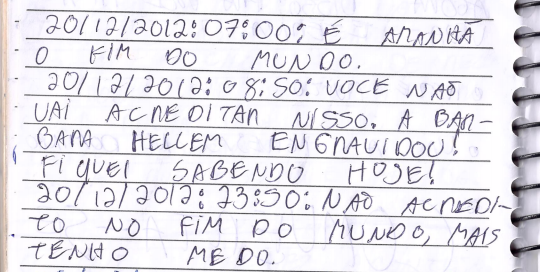 20/12/2012: 07:00: É AMANHÃ
O FIM DO MUNDO.
20/12/2012: 08:50: VOCE NAO
VAI ACREDITAR NISSO. A BAR-
BARA HELLEM ENGRAVIDOU!
FIQUEI SABENDO HOJE!
20/12/2012: 23:50: NAO ACREDI-
TO NO FIM DO MUNDO, MAIS
TENHO MEDO.